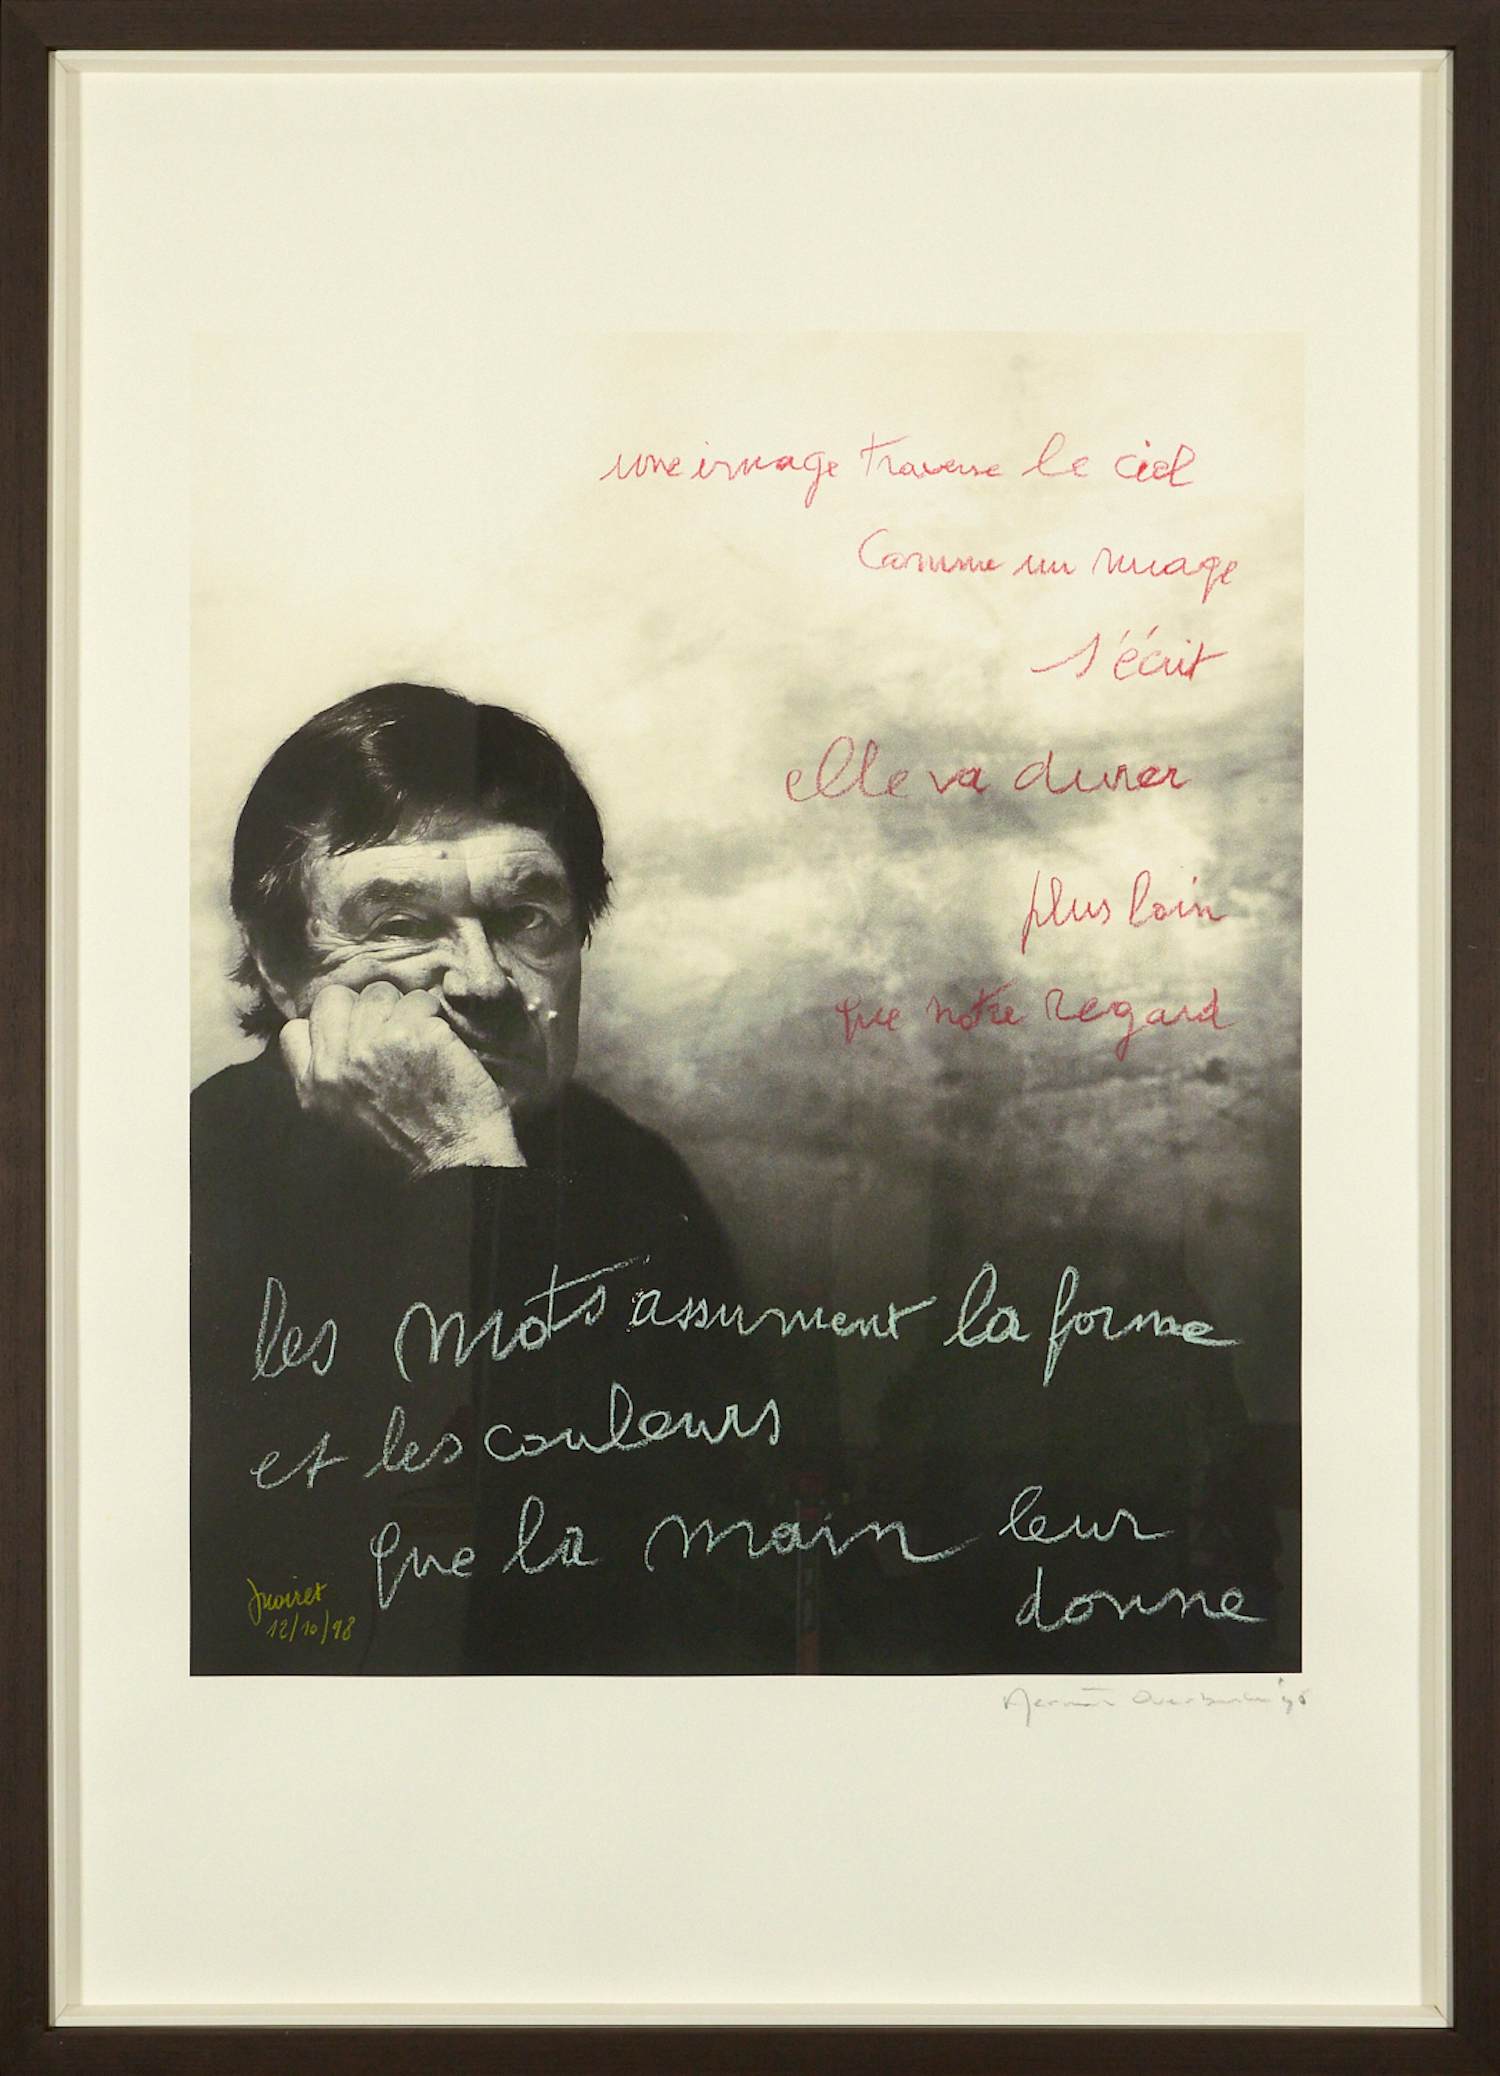 une image traverse le ciel
Comme un nuage
s'écrit
elle va durer
plus loin
que notre regard
les mots assument la forme
et les couleurs
que la main leur
donne
12/10/98